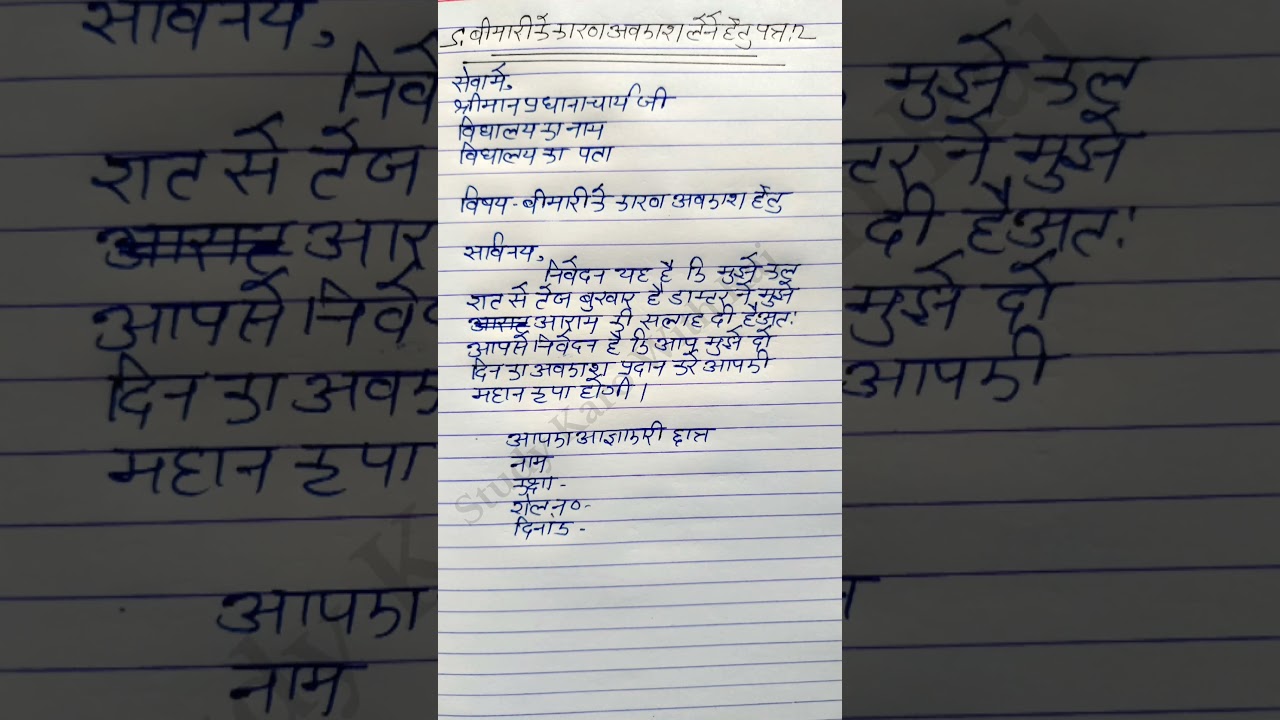 5. बीमारी के कारण अवकाश लेने हेतु पत्र।2
सेवा में,
श्रीमान प्रधानाचार्य जी
विधालय का नाम
विधालय का पता
विषय - बीमारी के कारण अवकाश हेतु
सविनय,
निवेदन यह है कि मुझे कल
रात से तेज बुखार है डाक्टर ने मुझे
आराम की सलाह दी है अत:
आपसे निवेदन है कि आप मुझे दो
दिन का अवकाश प्रदान करे आपकी
महान कृपा होगी ।
आपका आज्ञाकारी छात्र
नाम
कक्षा -
रोल न० -
दिनांक -
Study Ka With